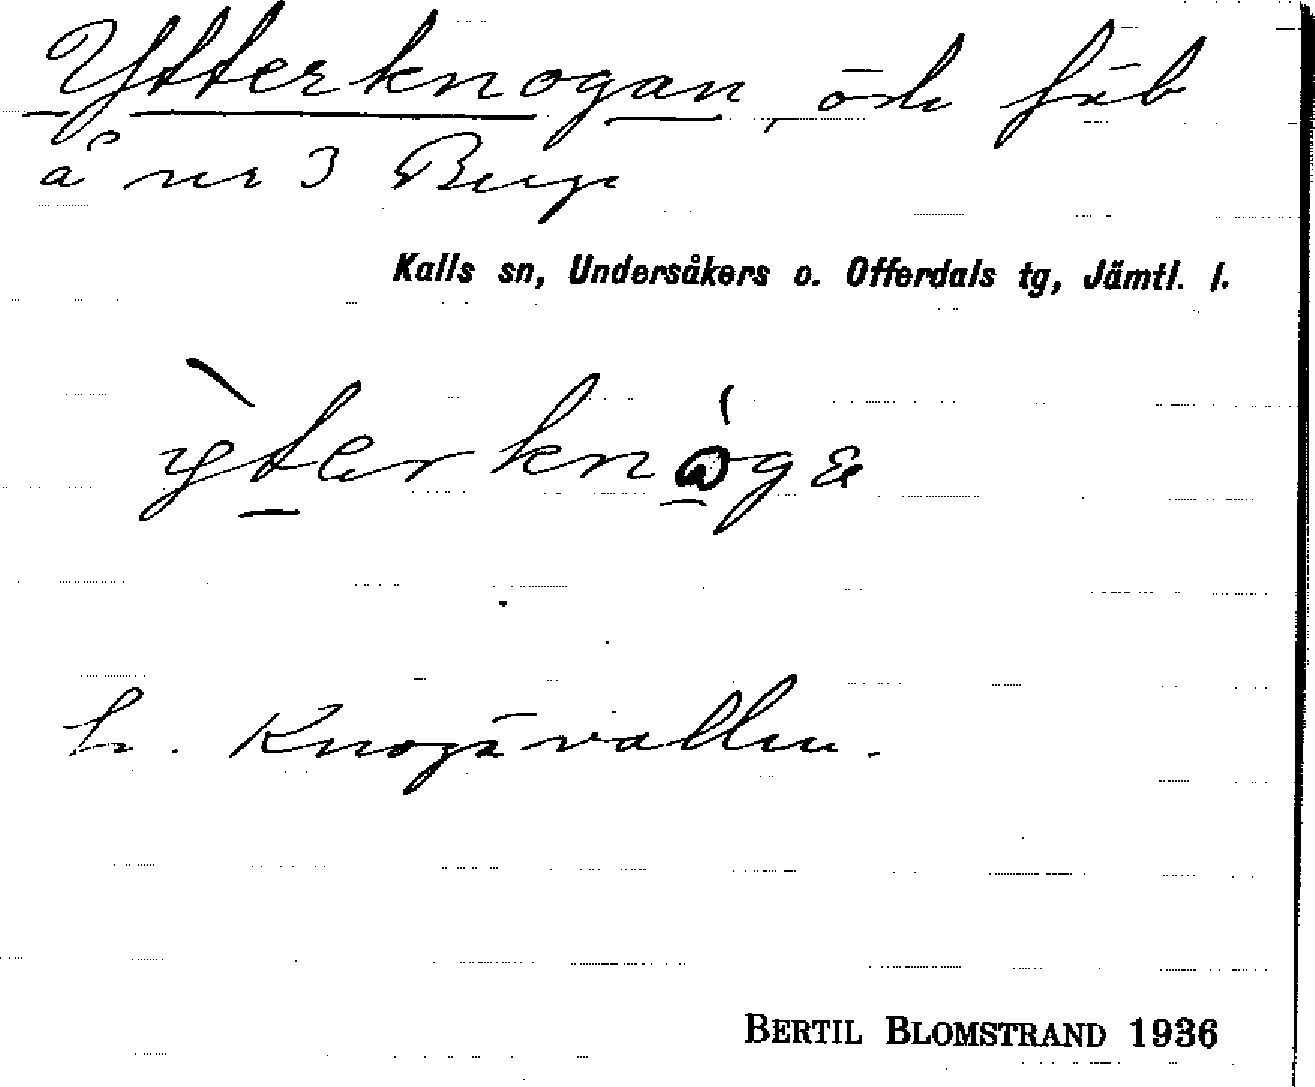 Ytterknogan, öde fäb
å nr 3 Berge
Kalls sn, Undersåkers o. Offerdals tg, Jämtl. l.
Knogsvallen.
BERTIL BLOMSTRAND 1936